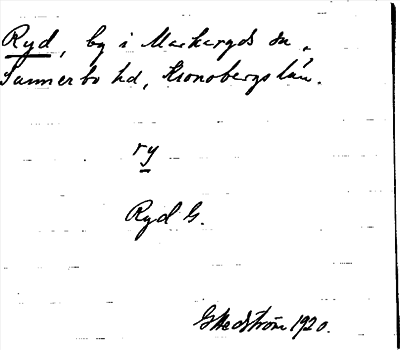 Ryd, by i Markaryds sn,
Sunnerbo hd, Kronobergs län.
ry
Ryd G.
G Hedström 1920.